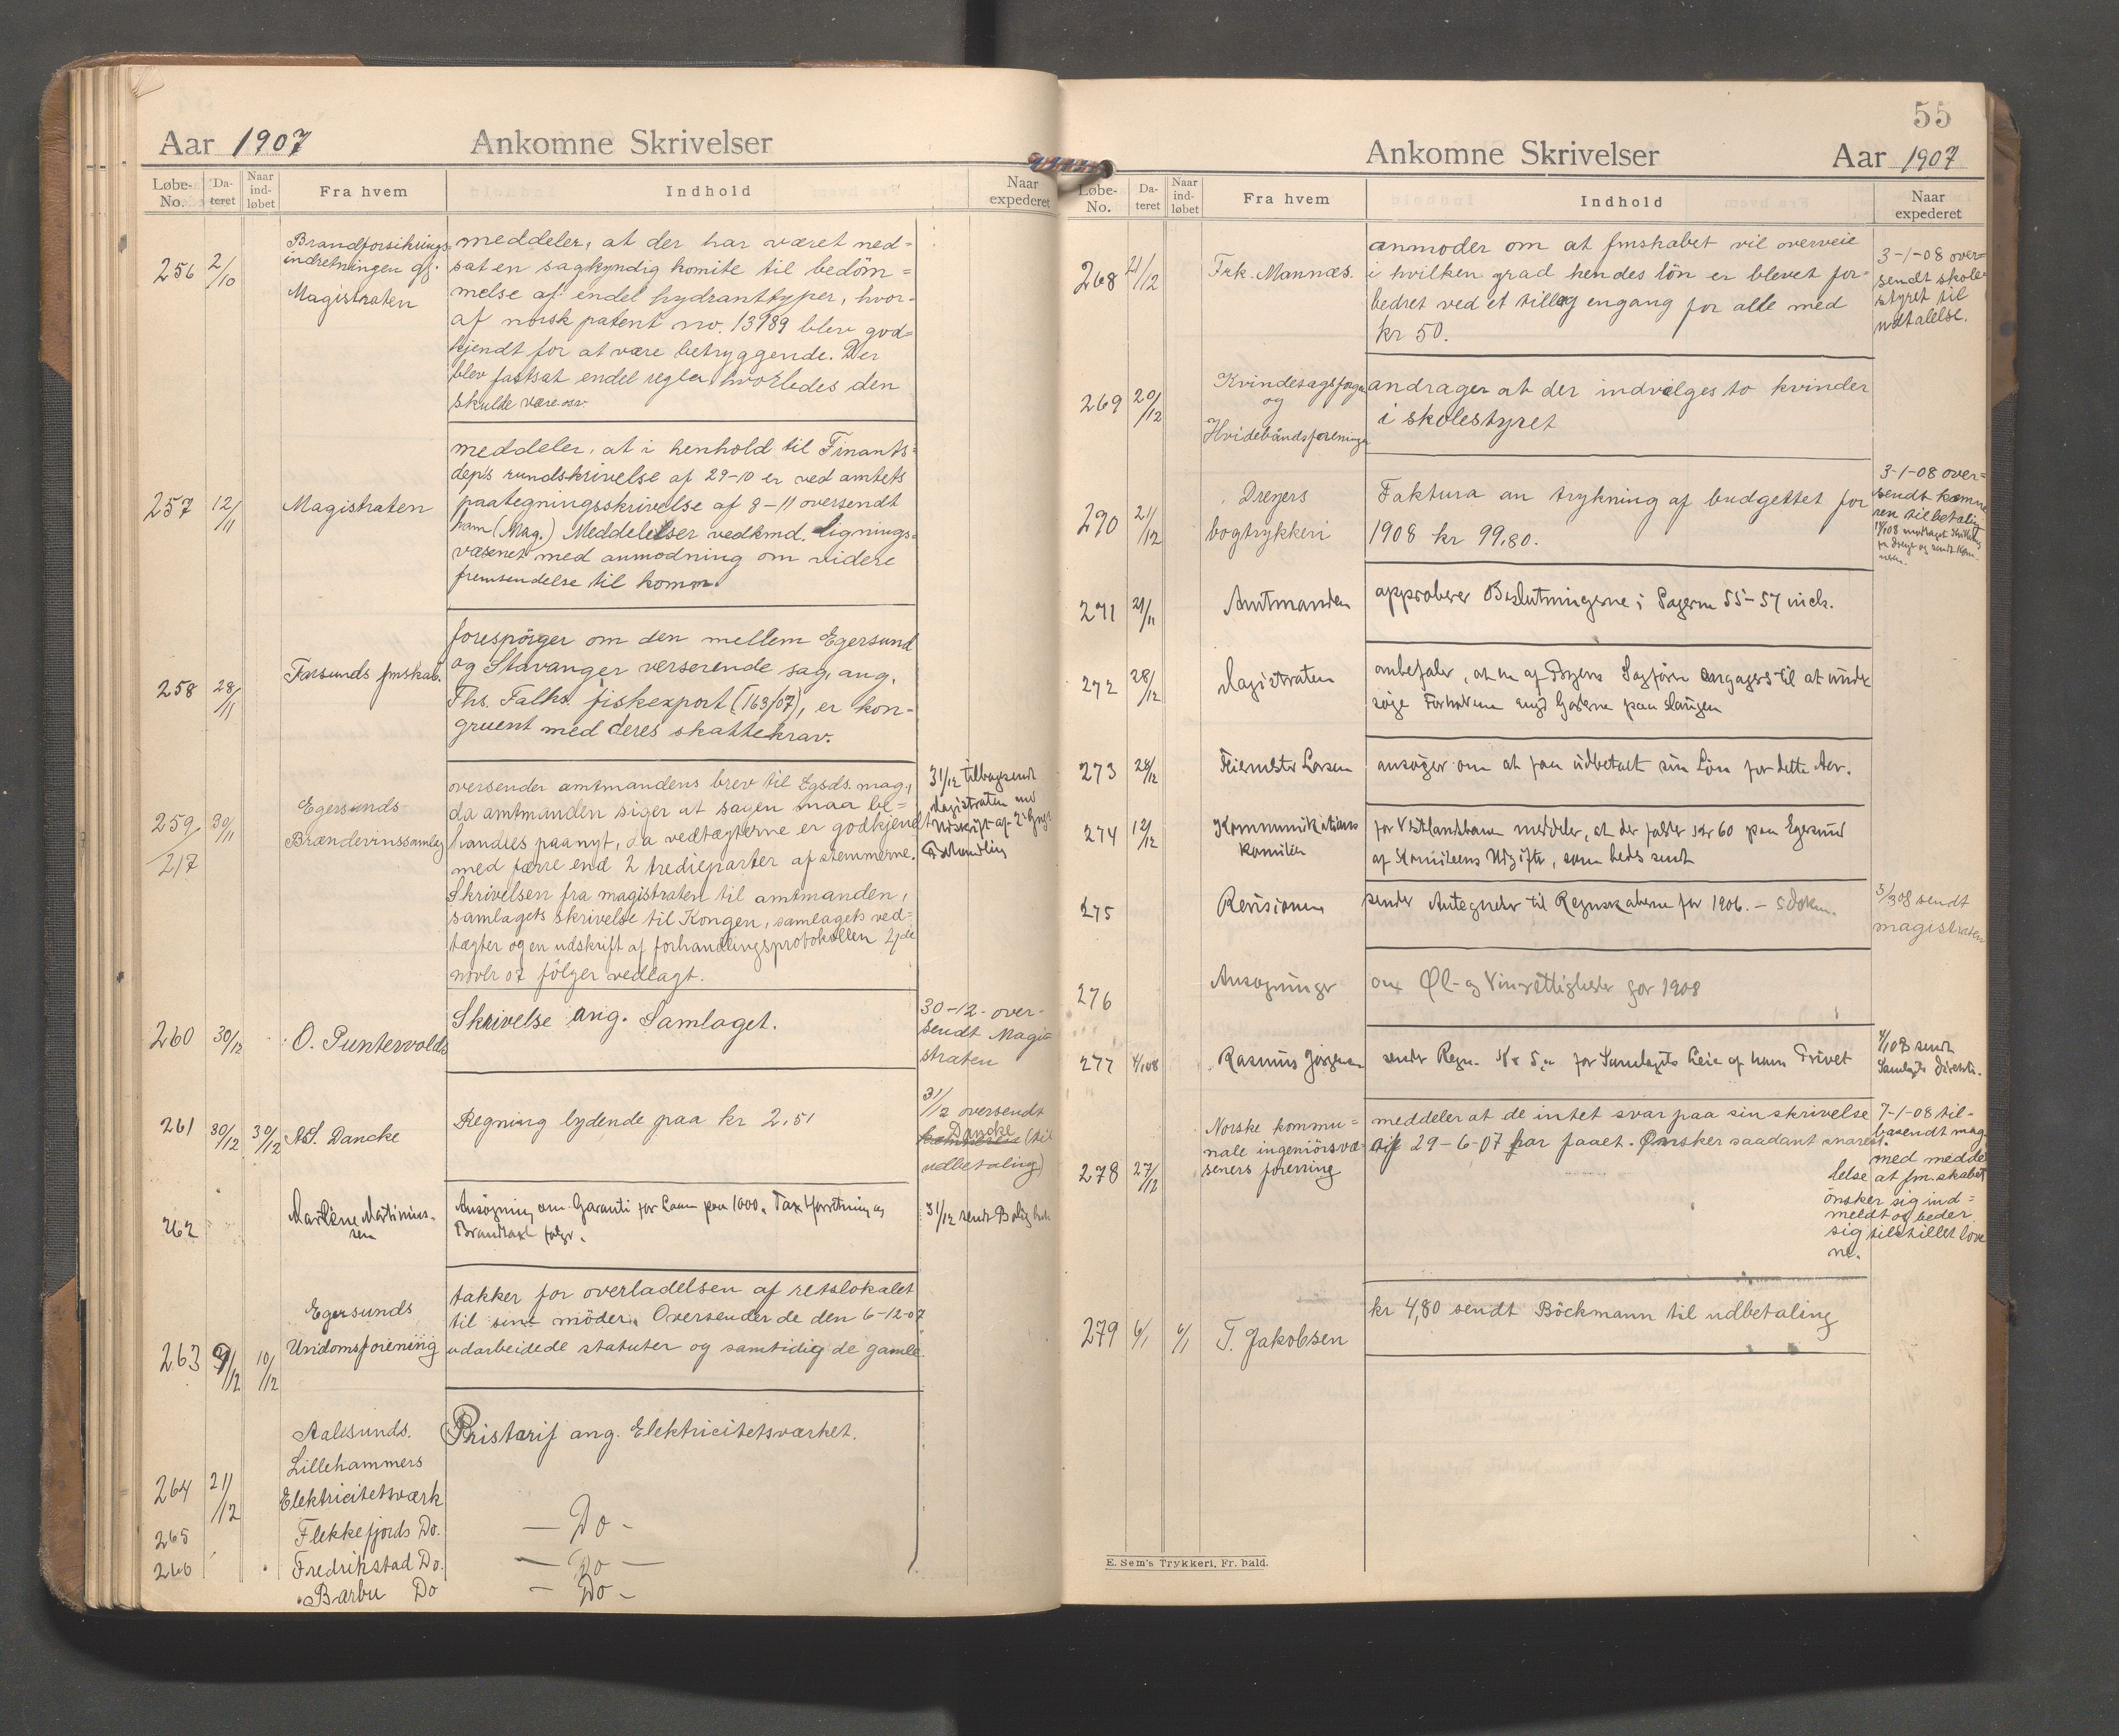 Aar 1907
Ankomne Skrivelser
Løbe-No.
Da-teret
Naar ind-løbet
Fra hvem
Indhold
Naar expederet
256
2/10
Brandforsikrings-
indretningen gj.
Magistraten
meddeler, at der har været ned-
sat en sagkyndig komite til bedöm-
melse af endel hydranttyper, hvor-
af norsk patent no. 13989 blev god-
kjendt for at være betryggende. Der
blev fastsat endel regler hvorledes den
skulde være osv.
257
12/11
Magistraten
meddeler, at i henhold til Finants-
dep's rundskrivelse af 29-10 er ved amtets
paategningsskrivelse af 8-11 oversendt
ham (Mag.) Meddelelser vedkmd. Lignings-
væsenet med anmodning om videre
fremsendelse til komm.
258
28/11
Farsunds fmskab.
forespörger om den mellem Egersund
og Stavanger verserende sag, ang.
Ths. Falks. fiskexport (163/07), er kon-
gruent med deres skattekrav.
259/217
30/11
Egersunds
Brændevinssamlag
oversender amtmandens brev til Egsds. mag.,
da amtmanden siger at sagen maa be-
handles paanyt, da vedtægterne er godkjendt
med færre end 2 tredieparter af stemmerne.
Skrivelsen fra magistraten til amtmanden,
samlagets skrivelse til Kongen, samlagets ved-
tægter og en udskrift af forhandlingsprotokollen 4de
novbr 07 fölger vedlagt.
31/12 tilbagesendt
Magistraten med
Udskrift af 2 Gngs
Behandling
260
30/12
O. Puntervolds
Skrivelse ang. Samlaget.
30-12- over-
sendt Magi-
straten
261
30/12
30/12
A.S. Dancke
Regning lydende paa kr 2,51
31/12 oversendt
Dancke (til
udbetaling)
262
Martine Martinius-
sen
Ansøgning om Garanti for Laan paa 1000. Taxtforretning og
Brandtaxt følger.
31/12 sendt Bolig
263
9/12
10/12
Egersunds
Undomsforening
takker for overladelsen af retslokalet
til sine möder. Oversender de den 6-12-07
udarbeidede statuter og samtidig de gamle.
264
21/12
Aalesunds.
Lillehammers
Elektricitetsværk
Pristarif ang. Elektricitetsværket.
265
Flekkefjords Do.
— Do -
266
Fredrikstad Do.
— Do —
Barbu Do
— Do -
55
Ankomne Skrivelser
Aar 1907
Løbe-No.
Da-teret
Naar ind-løbet
Fra hvem
Indhold
Naar expederet
268
21/12
Frk. Mannæs.
anmoder om at fmskabet vil overveie
i hvilken grad hendes lön er blevet for-
bedret ved et tillæg engang for alle med
kr 50.
3-1-08 over-
sendt skole-
styret til
udtalelse.
269
20/12
Kvindesagsforgn
og
Hvidebåndsforeninge
andrager at der indvælges to kvinder
i skolestyret
290
21/12
Dreyers
bogtrykkeri
Faktura an trykning af budgettet for
1908 kr 99,80.
3-1-08 over-
sendt kæmne
ren til betaling
271
21/11
Amtmanden
approberer Beslutningerne i Sagerne 55-57 incl.
272
28/12
Magistraten
anbefaler, at en af Byens Sagførere engageres til at under
søge Forholdene
273
28/12
Feiemester Larsen
ansøger om at faa udbetalt sin Løn for dette Aar.
274
12/12
Kommunikations
komiteen
for Vestlandsbanen meddeler, at der falder kr 60 paa Egersund
af Komiteens Udgifter, som bedes sendt
275
Revisionen
sender Antegnelser til Regnskaberne for 1906. — 5 dokm.
3/1 08 sendt
magistraten
276
Ansøgninger
om Øl- og Vinrettigheder for 1908
277
4/1 08
Rasmus Jørgensen
sender Regn. Kr 5,- for Samlagets Leie af hans Privet
4/1 08 sendt
Samlagets Direktion.
278
27/12
Norske kommu-
nale ingeniörsvæ-
seners forening
meddeler at de intet svar paa sin skrivelse
af 29-6-07 har faaet. Önsker saadant snarest.
7-1-08 til-
basendt mag.
med medde
lelse at fm.skabet
önsker sig ind-
meldt og beder
sig tilstillet love
ne.
279
6/1
6/1
T. Jakobsen
kr 4,80 sendt Böckmann til udbetaling
E. Sem's Trykkeri, Fr.hald.